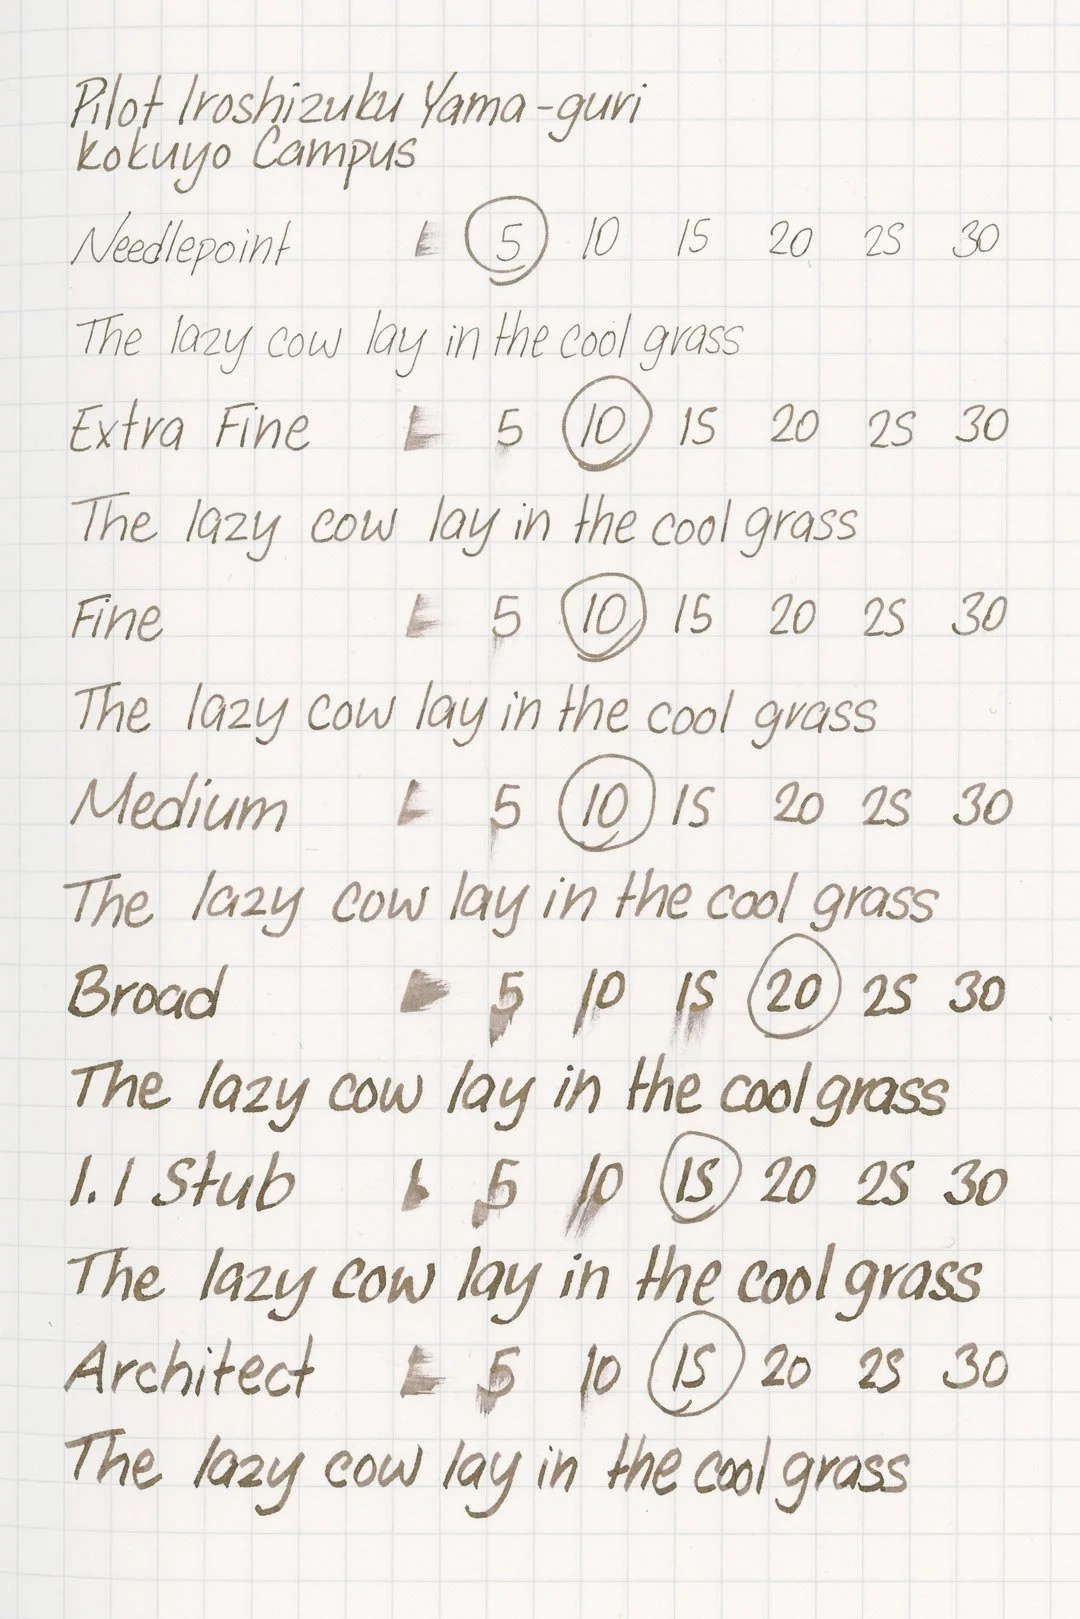 Pilot Iroshizuku Yama-guri
Kokuyo Campus
Needlepoint L 5 10 15 20 25 30
The lazy cow lay in the cool grass
Extra Fine L 5 10 15 20 25 30
The lazy cow lay in the cool grass
Fine L 5 10 15 20 25 30
The lazy cow lay in the cool grass
Medium L 5 10 15 20 25 30
The lazy cow lay in the cool grass
Broad 5 10 15 20 25 30
The lazy cow lay in the cool grass
1.1 Stub 5 10 15 20 25 30
The lazy cow lay in the cool grass
Architect L 5 10 15 20 25 30
The lazy cow lay in the cool grass